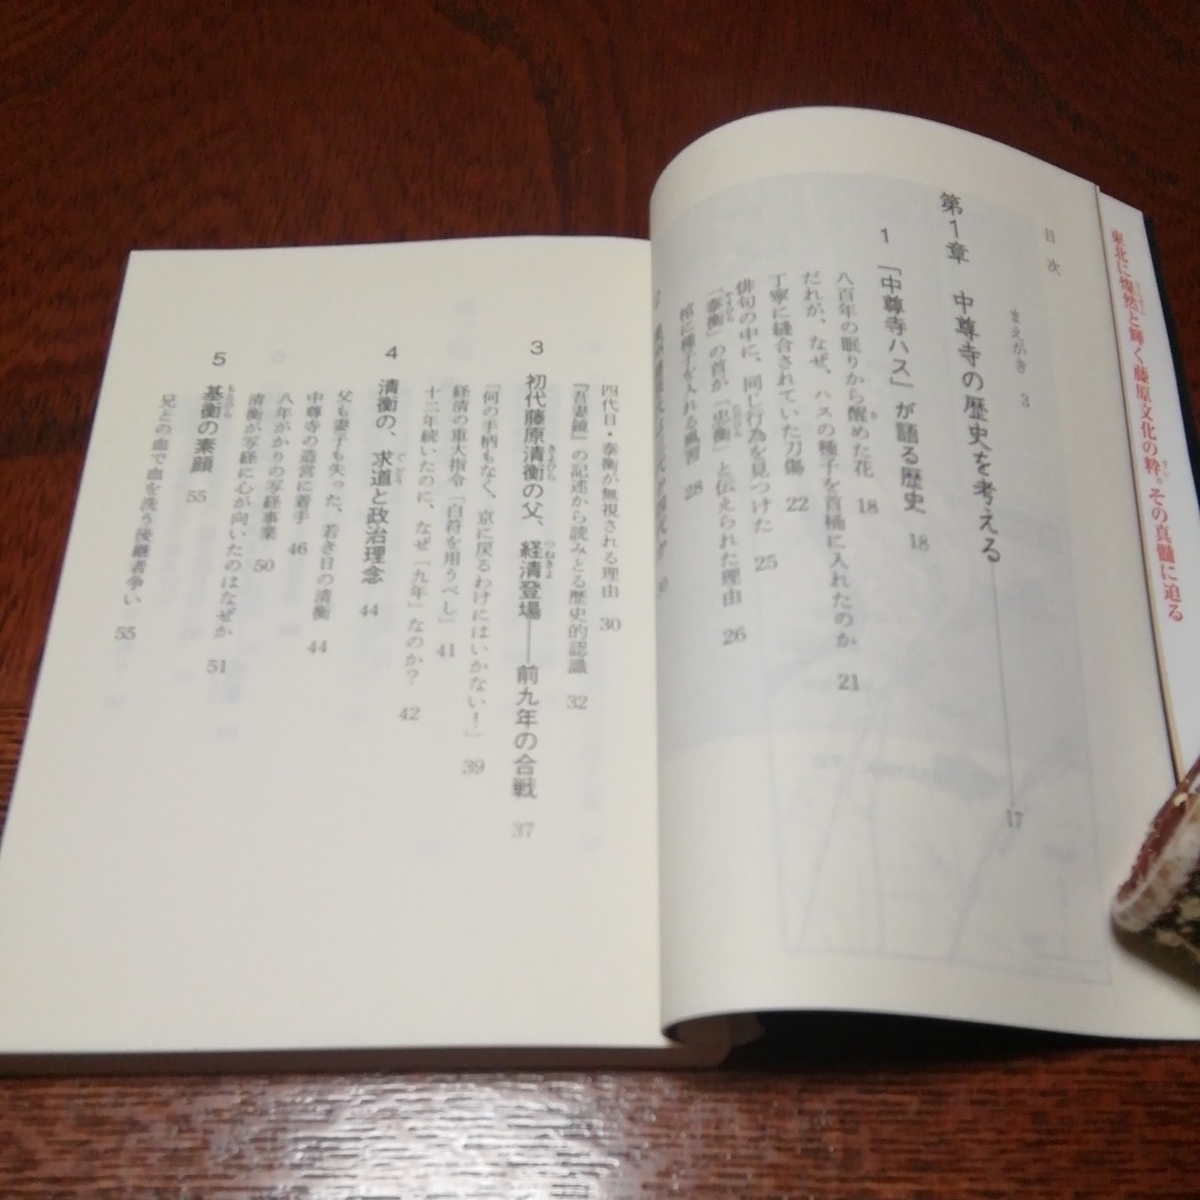 東北に燦然と輝く藤原文化の粋。その真髄に迫る
目次
まえがき 3
第1章 中尊寺の歴史を考える 17
1 「中尊寺ハス」が語る歴史 18
八百年の眠りから醒めた花 18
だれが、なぜ、ハスの種子を首桶に入れたのか 21
丁寧に縫合されていた刀傷 22
俳句の中に、同じ行為を見つけた 25
「泰衡」の首が「忠衡」と伝えられた理由 26
棺に種子を入れる風習 28
四代目・泰衡が無視される理由 30
『吾妻鏡』の記述から読みとる歴史的認識 32
3 初代藤原清衡の父、経清登場――前九年の合戦 37
「何の手柄もなく、京に戻るわけにはいかない!」 39
経清の重大指令「白符を用うべし」 41
十二年続いたのに、なぜ「九年」なのか? 42
4 清衡の、求道と政治理念 44
父も妻子も失った、若き日の清衡 44
中尊寺の造営に着手 46
八年がかりの写経事業 50
清衡が写経に心が向いたのはなぜか 51
5 基衡の素顔 55
兄との血で血を洗う後継者争い 55